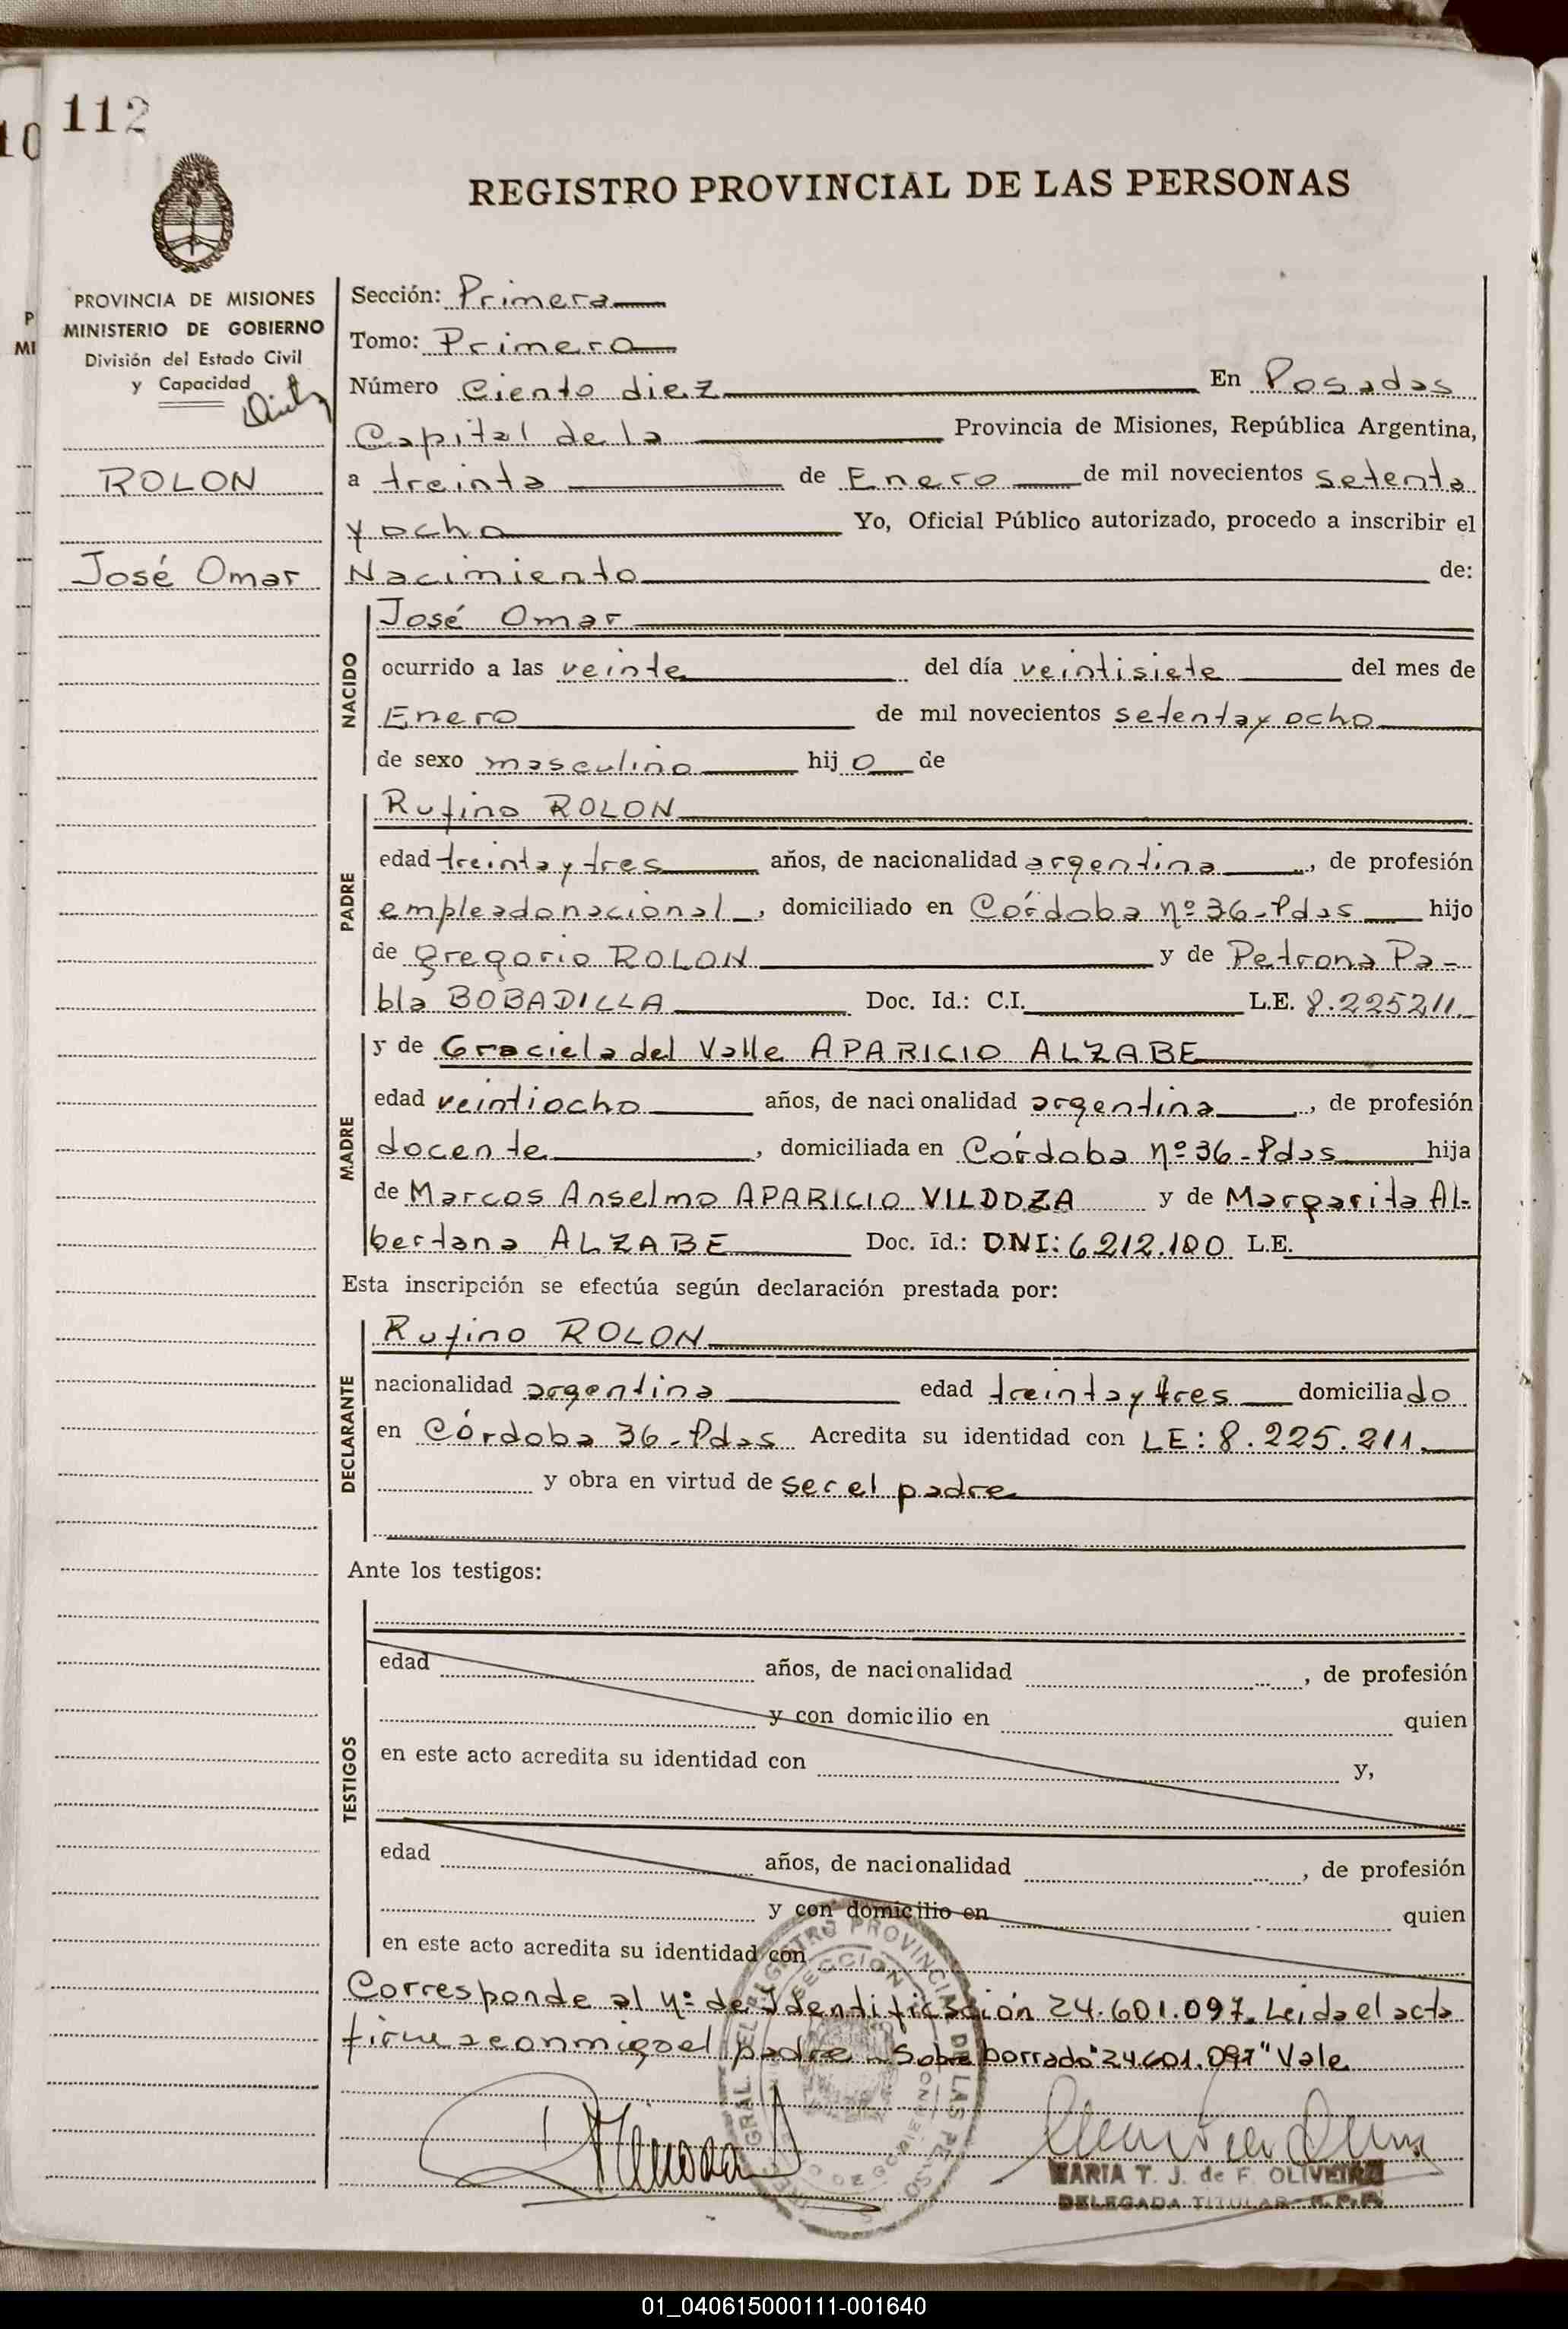 112
10
REGISTRO PROVINCIAL DE LAS PERSONAS
PROVINCIA DE MISIONES
MINISTERIO DE GOBIERNO
División del Estado Civil
y Capacidad
ROLON
José Omar
P
MI
Sección: Primera
Tomo: Primero
Número Ciento diez En Posadas
Capital de la Provincia de Misiones, República Argentina,
a treinta de Enero de mil novecientos setenta
y ocho Yo, Oficial Público autorizado, procedo a inscribir el
Nacimiento de:
NACIDO
José Omar
ocurrido a las veinte del día veintisiete del mes de
Enero de mil novecientos setenta y ocho
de sexo masculino hijo de
PADRE
Rufino ROLON
edad treinta y tres años, de nacionalidad argentina, de profesión
empleado nacional, domiciliado en Córdoba nº 36-Pdas hijo
de Gregorio ROLON y de Petrona Pa-
bla BOBADILLA Doc. Id.: C.I. L.E. 8.225211.
MADRE
y de Graciela del Valle APARICIO ALZABE
edad veintiocho años, de nacionalidad argentina, de profesión
docente, domiciliada en Córdoba nº 36-Pdas hija
de Marcos Anselmo APARICIO VILDOZA y de Margarita Al-
bertana ALZABE Doc. Id.: DNI: 6.212.180 L.E.
Esta inscripción se efectúa según declaración prestada por:
DECLARANTE
Rufino ROLON
nacionalidad argentina edad treinta y tres domiciliado
en Córdoba 36-Pdas Acredita su identidad con LE: 8.225.211.
y obra en virtud de ser el padre
Ante los testigos:
TESTIGOS
edad años, de nacionalidad , de profesión
y con domicilio en quien
en este acto acredita su identidad con y,
edad años, de nacionalidad , de profesión
y con domicilio en quien
en este acto acredita su identidad con
Corresponde al nº de Identificación 24.601.097. Leida el acta
firma conmigo el padre - Sobre borrado "24.601.097" Vale
MARIA T. J. de F. OLIVEIRA
DELEGADA TITULAR - R.P.P.
01_040615000111-001640